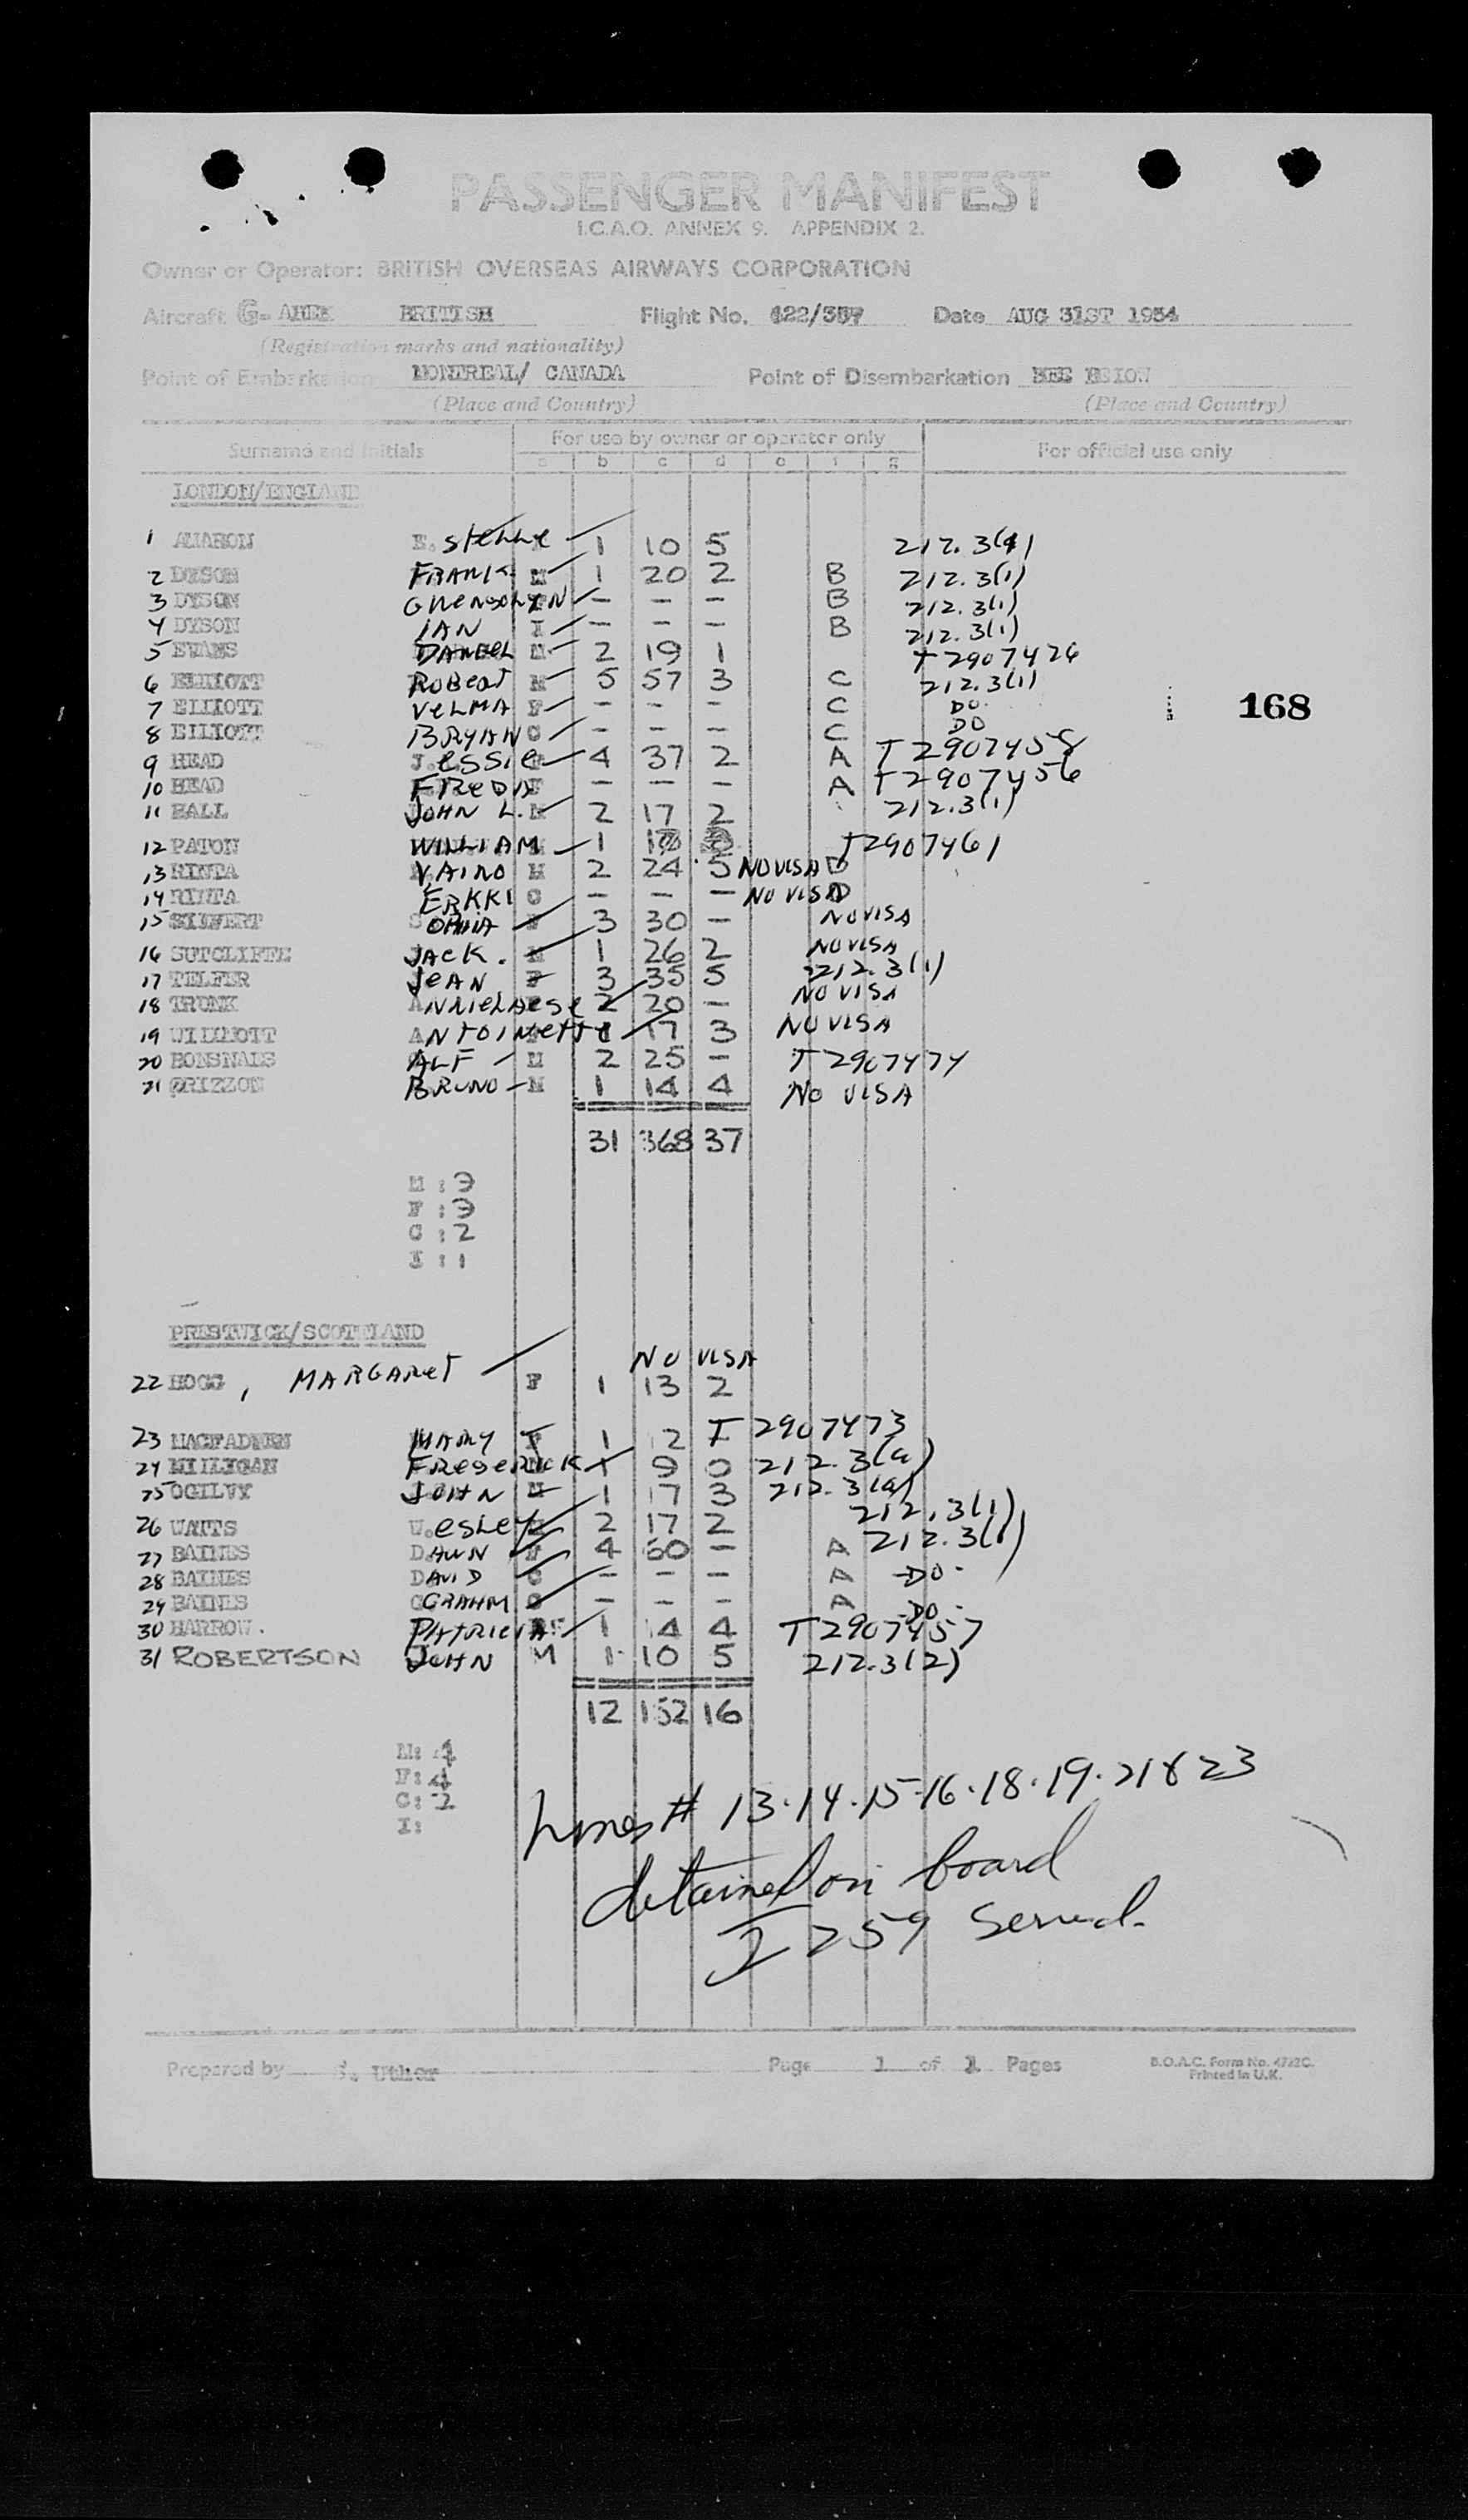 PASSENGER MANIFEST
I.C.A.O. ANNEX 9. APPENDIX 2.
Owner or Operator: BRITISH OVERSEAS AIRWAYS CORPORATION
Aircraft G- BRITISH Flight No. 622/ Date AUG 31ST 1954
(Registration marks and nationality)
Point of Embarkation MONTREAL/ CANADA Point of Disembarkation
(Place and Country) (Place and Country)
Surname and Initials For use by owner or operator only For official use only
a b c d e f g
LONDON/ENGLAND
1 E. Stelle 1 10 5 212.3(4)
2 DYSON FRANK M 1 20 2 B 212.3(1)
3 DYSON GWENDOLYN - - - B 212.3(1)
4 DYSON IAN I - - - B 212.3(1)
5 EVANS DANIEL M 2 19 1 T2907426
6 ELLIOTT ROBERT M 5 57 3 C 212.3(1)
168
7 ELLIOTT VELMA F - - - C DO
8 ELLIOTT BRYAN C - - - C DO
9 HEAD JESSIE F 4 37 2 A T2907458
10 HEAD FREDA F - - - A T2907456
11 HALL JOHN L. M 2 17 2 212.3(1)
12 PATON WILLIAM M 1 T2907461
13 RINTA VAINO M 2 24 5 NO VISA D
14 RINTA ERKKI C - - - NO VISA D
15 F 3 30 - NO VISA
16 SUTCLIFFE JACK. M 1 26 2 NO VISA
17 TELFER JEAN F 3 35 5 212.3(1)
18 TRUNK ANNIELIESE 2 20 - NO VISA
19 WILLMOTT ANTOINETTE 1 17 3 NO VISA
20 ALF M 2 25 - T2907474
21 BRUNO M 1 14 4 NO VISA
31 368 37
M : 9
F : 9
C : 2
I : 1
PRESTWICK/SCOTLAND
NO VISA
22 HOGG, MARGARET F 1 13 2
23 MACFADYEN MARY F 1 2 I 2907473
24 MILLIGAN FREDERICK M 1 9 0 212.3(a)
25 OGILVY JOHN M 1 17 3 212.3(a)
26 WATTS WESLEY M 2 17 2 212.3(1)
27 BAINES DAWN F 4 60 - A 212.3(1)
28 BAINES DAVID C - - - A -DO-
29 BAINES GRAHM C - - - A -DO-
30 HARROW. PATRICIA F 1 14 4 T2907457
31 ROBERTSON JOHN M 1 10 5 212.3(2)
12 152 16
M: 4
F: 4
C: 2
I:
Lines # 13.14.15-16.18.19.21 & 23
detained on board
I 259 Served.
Prepared by Page 1 of 1 Pages B.O.A.C. Form No. 4722C.
Printed in U.K.